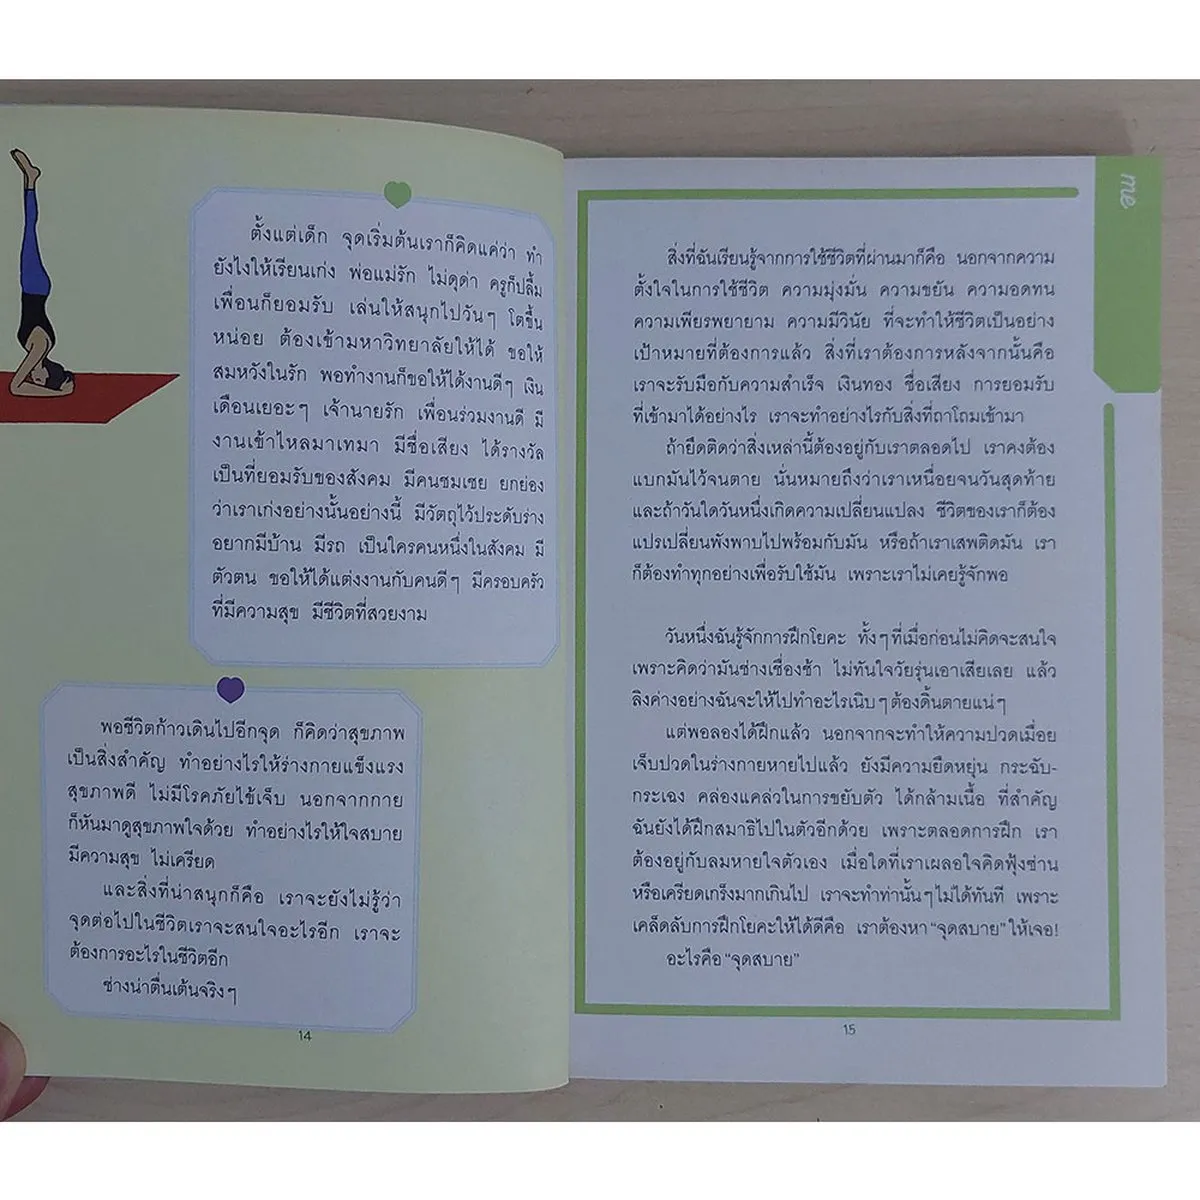 ตั้งแต่เด็ก จุดเริ่มต้นเราก็คิดแค่ว่า ทำ
ยังไงให้เรียนเก่ง พ่อแม่รัก ไม่ดุด่า ครูก็ปลื้ม
เพื่อนก็ยอมรับ เล่นให้สนุกไปวันๆ โตขึ้น
หน่อย ต้องเข้ามหาวิทยาลัยให้ได้ ขอให้
สมหวังในรัก พอทำงานก็ขอให้ได้งานดีๆ เงิน
เดือนเยอะๆ เจ้านายรัก เพื่อนร่วมงานดี มี
งานเข้าไหลมาเทมา มีชื่อเสียง ได้รางวัล
เป็นที่ยอมรับของสังคม มีคนชมเชย ยกย่อง
ว่าเราเก่งอย่างนั้นอย่างนี้ มีวัตถุไว้ประดับร่าง
อยากมีบ้าน มีรถ เป็นใครคนหนึ่งในสังคม มี
ตัวตน ขอให้ได้แต่งงานกับคนดีๆ มีครอบครัว
ที่มีความสุข มีชีวิตที่สวยงาม
พอชีวิตก้าวเดินไปอีกจุด ก็คิดว่าสุขภาพ
เป็นสิ่งสำคัญ ทำอย่างไรให้ร่างกายแข็งแรง
สุขภาพดี ไม่มีโรคภัยไข้เจ็บ นอกจากกาย
ก็หันมาดูสุขภาพใจด้วย ทำอย่างไรให้ใจสบาย
มีความสุข ไม่เครียด
และสิ่งที่น่าสนุกก็คือ เราจะยังไม่รู้ว่า
จุดต่อไปในชีวิตเราจะสนใจอะไรอีก เราจะ
ต้องการอะไรในชีวิตอีก
ช่างน่าตื่นเต้นจริงๆ
14
me
สิ่งที่ฉันเรียนรู้จากการใช้ชีวิตที่ผ่านมาก็คือ นอกจากความ
ตั้งใจในการใช้ชีวิต ความมุ่งมั่น ความขยัน ความอดทน
ความเพียรพยายาม ความมีวินัย ที่จะทำให้ชีวิตเป็นอย่าง
เป้าหมายที่ต้องการแล้ว สิ่งที่เราต้องการหลังจากนั้นคือ
เราจะรับมือกับความสำเร็จ เงินทอง ชื่อเสียง การยอมรับ
ที่เข้ามาได้อย่างไร เราจะทำอย่างไรกับสิ่งที่ถาโถมเข้ามา
ถ้ายึดติดว่าสิ่งเหล่านี้ต้องอยู่กับเราตลอดไป เราคงต้อง
แบกมันไว้จนตาย นั่นหมายถึงว่าเราเหนื่อยจนวันสุดท้าย
และถ้าวันใดวันหนึ่งเกิดความเปลี่ยนแปลง ชีวิตของเราก็ต้อง
แปรเปลี่ยนพังพาบไปพร้อมกับมัน หรือถ้าเราเสพติดมัน เรา
ก็ต้องทำทุกอย่างเพื่อรับใช้มัน เพราะเราไม่เคยรู้จักพอ
วันหนึ่งฉันรู้จักการฝึกโยคะ ทั้งๆที่เมื่อก่อนไม่คิดจะสนใจ
เพราะคิดว่ามันช่างเชื่องช้า ไม่ทันใจวัยรุ่นเอาเสียเลย แล้ว
ลิงค่างอย่างฉันจะให้ไปทำอะไรเนิบๆต้องดิ้นตายแน่ๆ
แต่พอลองได้ฝึกแล้ว นอกจากจะทำให้ความปวดเมื่อย
เจ็บปวดในร่างกายหายไปแล้ว ยังมีความยืดหยุ่น กระฉับ-
กระเฉง คล่องแคล่วในการขยับตัว ได้กล้ามเนื้อ ที่สำคัญ
ฉันยังได้ฝึกสมาธิไปในตัวอีกด้วย เพราะตลอดการฝึก เรา
ต้องอยู่กับลมหายใจตัวเอง เมื่อใดที่เราเผลอใจคิดฟุ้งซ่าน
หรือเครียดเกร็งมากเกินไป เราจะทำท่านั้นๆไม่ได้ทันที เพราะ
เคล็ดลับการฝึกโยคะให้ได้ดีคือ เราต้องหา “จุดสบาย” ให้เจอ!
อะไรคือ “จุดสบาย”
15